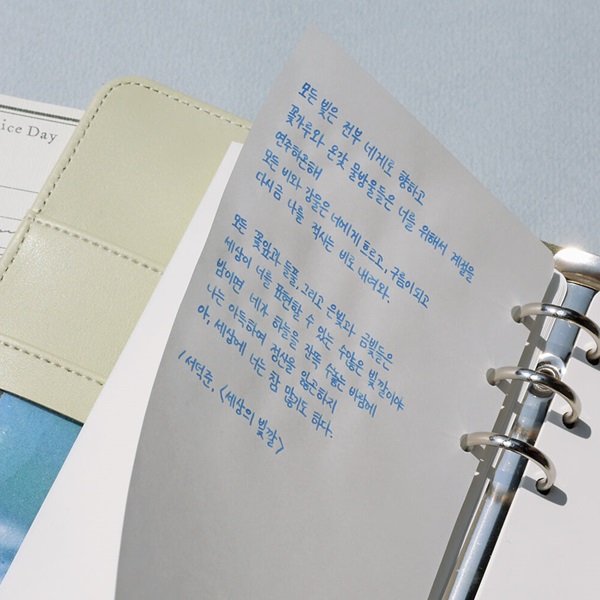 ice Day
모든 빛은 전부 네게로 향하고
꽃가루와 온갖 물방울들은 너를 위해서 계절을
연주하곤해
모든 비와 강물은 너에게 흐르고, 구름이 되고
다시금 나를 적시는 비로 내려와.
모든 꽃잎과 들풀, 그리고 은빛과 금빛들은
세상이 너를 표현할 수 있는 수많은 빛깔이야
밤이면 네가 하늘을 잔뜩 수놓는 바람에
나는 아득하여 정신을 잃곤하지
아, 세상에 너는 참 많기도 하다.
/서덕준, <세상의 빛깔>